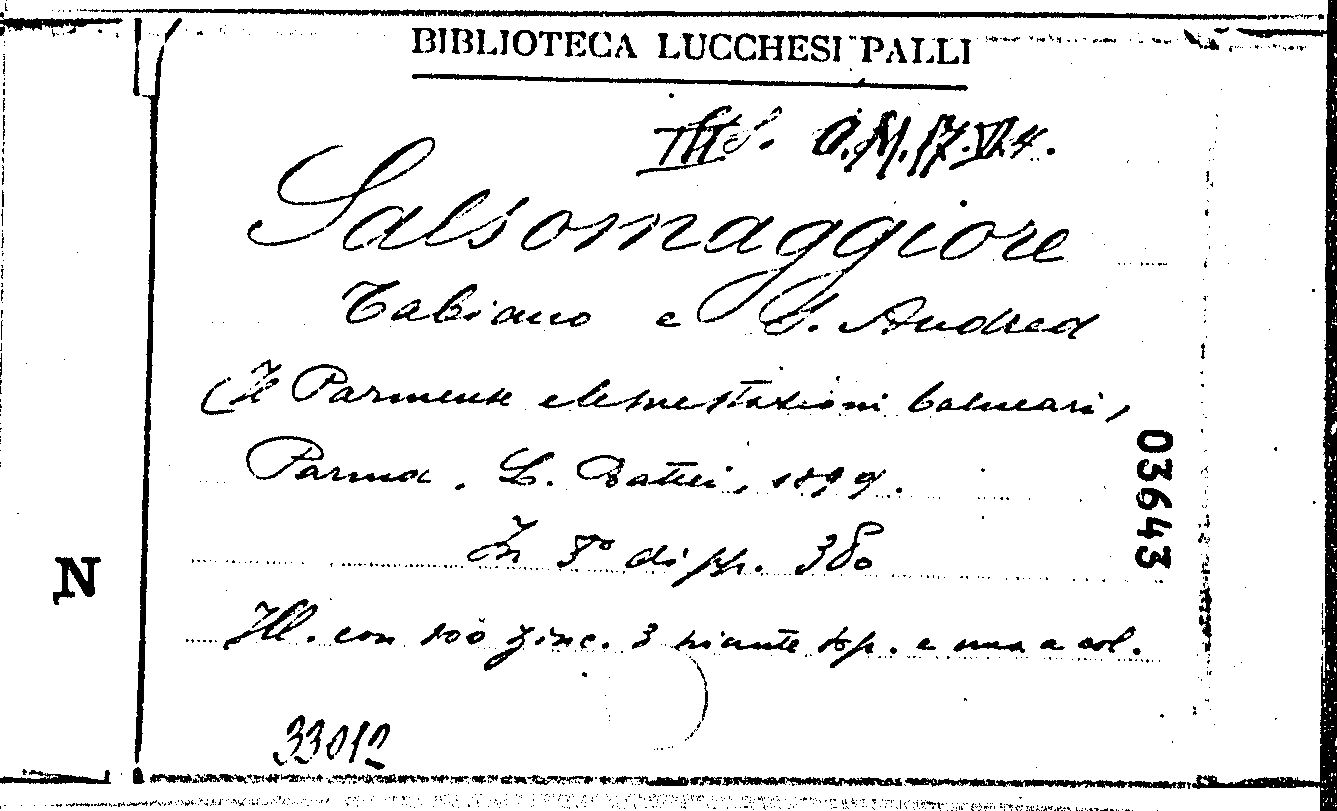 BIBLIOTECA LUCCHESI PALLI
Salsomaggiore
Tabiano e S. Andrea
(Il Parmense e le sue stazioni balneari,
Parma. L. Battei, 1899.
In 8° di pp. 380
Ill. con 100 zinc. 3 piante top. e una a col.
33012
03643
N